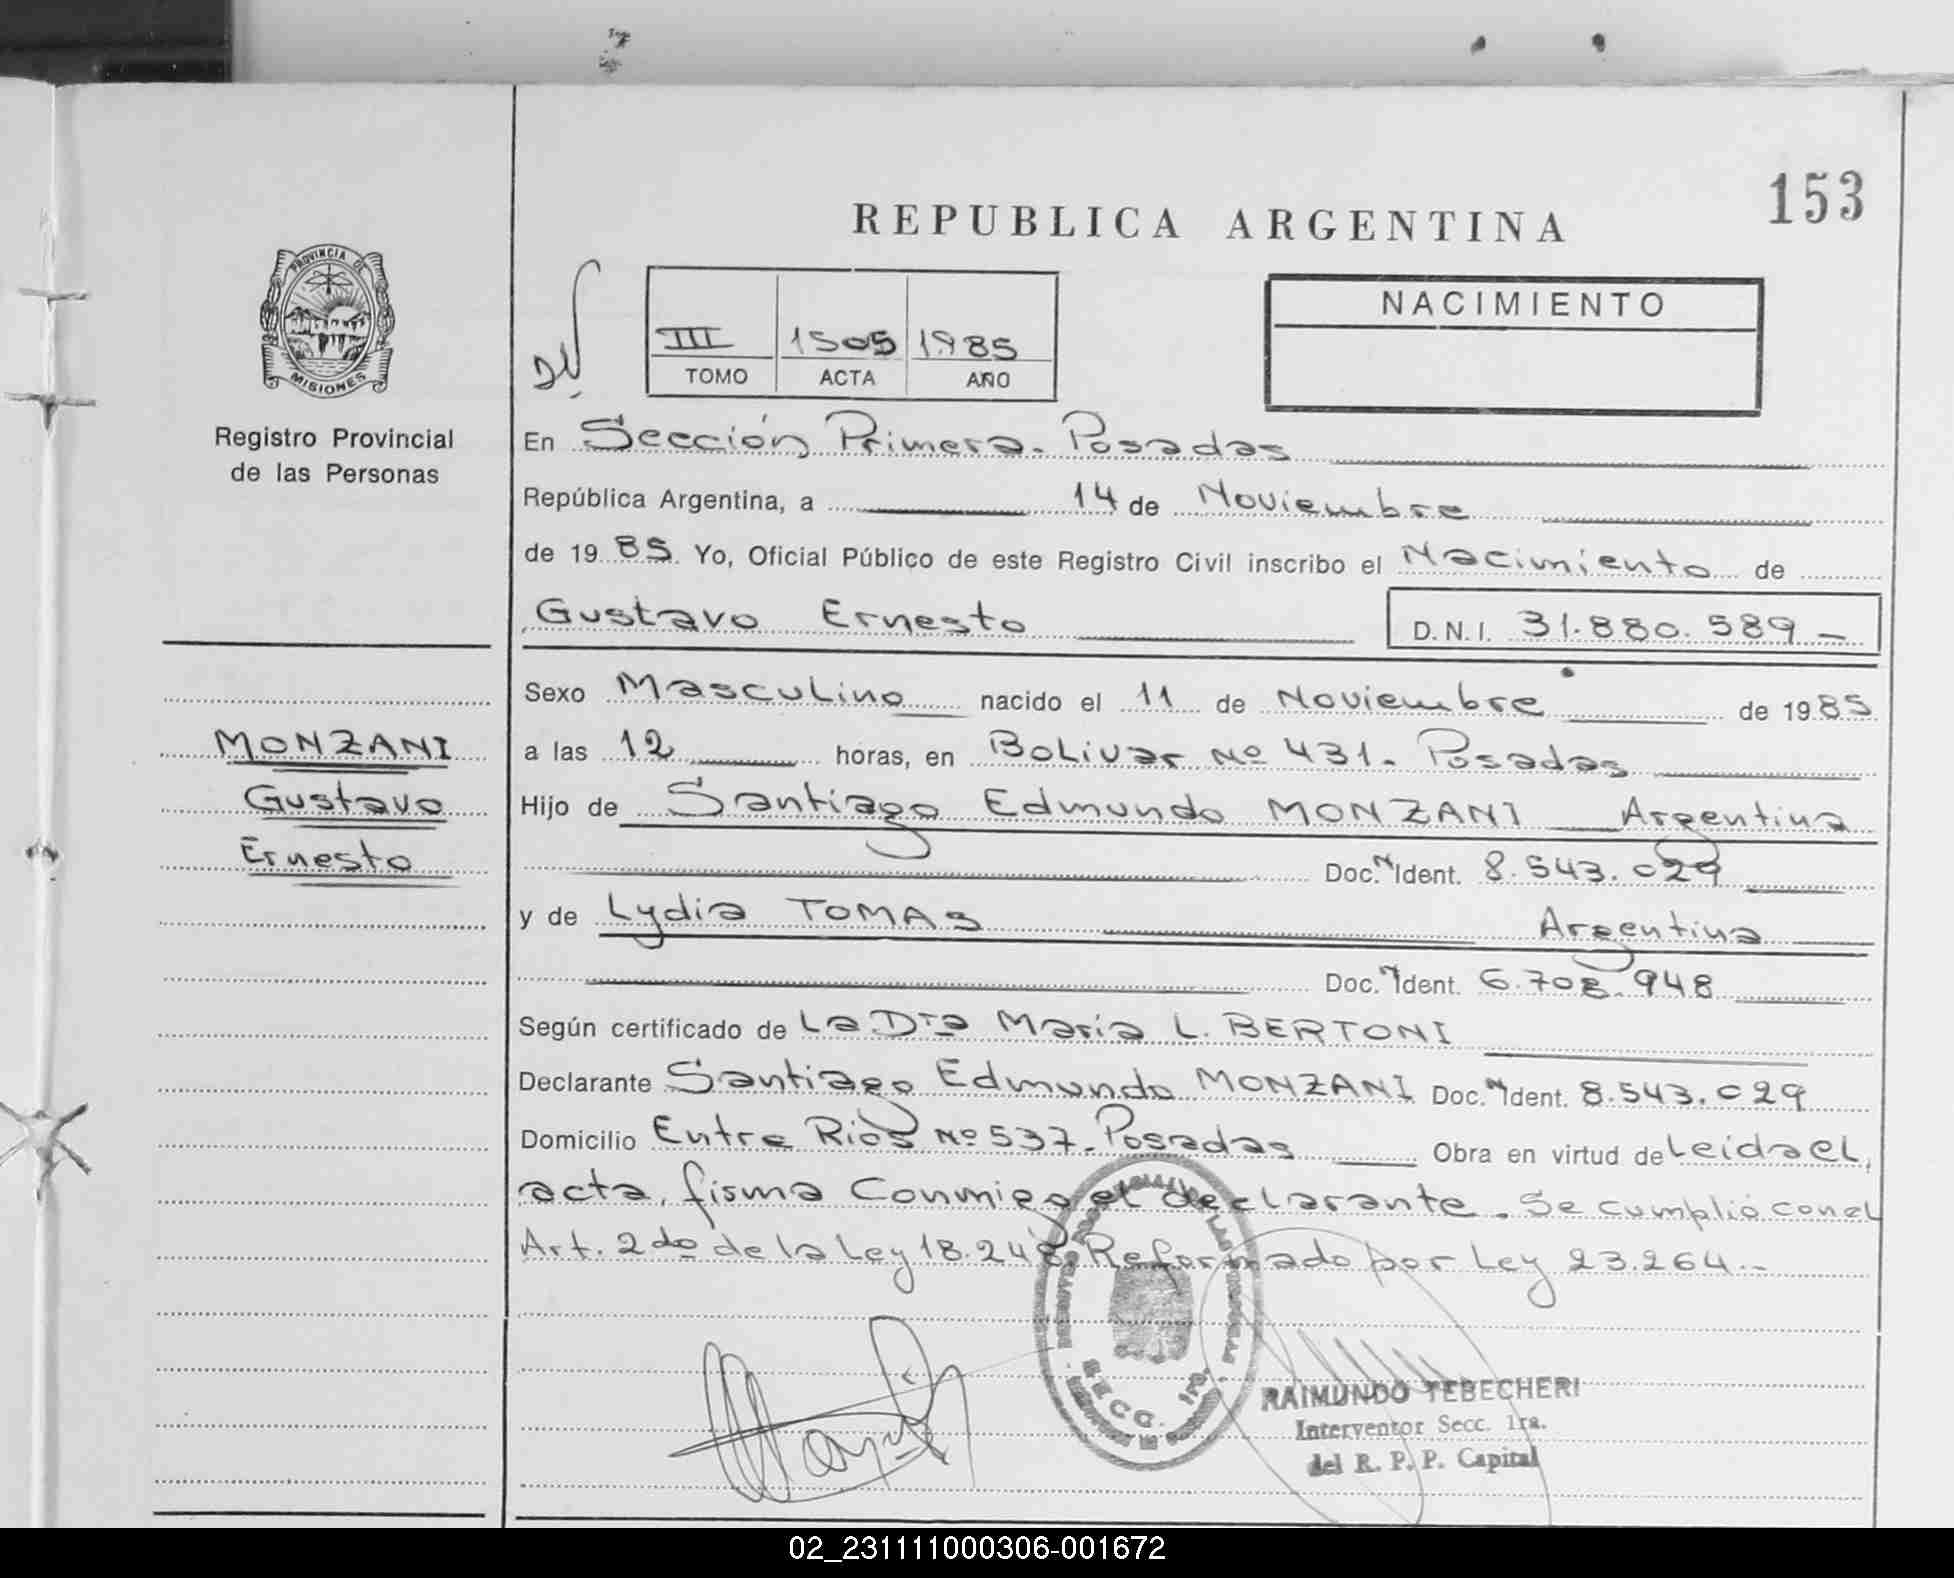 153
REPUBLICA ARGENTINA
PROVINCIA DE
MISIONES
Registro Provincial
de las Personas
III 1505 1985
TOMO ACTA AÑO
NACIMIENTO
En Sección Primera. Posadas
República Argentina, a 14 de Noviembre
de 1985 Yo, Oficial Público de este Registro Civil inscribo el Nacimiento de
Gustavo Ernesto D.N.I. 31.880.589 -
MONZANI
Gustavo
Ernesto
Sexo Masculino nacido el 11 de Noviembre de 1985
a las 12 horas, en Bolivar Nº 431. Posadas
Hijo de Santiago Edmundo MONZANI Argentina
Doc. N Ident. 8.543.029
y de Lydia TOMAS Argentina
Doc. N Ident. 6.708.948
Según certificado de La Dra María L. BERTONI
Declarante Santiago Edmundo MONZANI Doc. N Ident. 8.543.029
Domicilio Entre Ríos Nº 537. Posadas Obra en virtud de Leida el
acta, firma Conmigo el declarante. Se cumplió con el
Art. 2do de la Ley 18.248 Reformado por Ley 23.264.-
SECC. 1ra.
RAIMUNDO TEBECHERI
Interventor Secc. 1ra.
del R. P. P. Capital
02_231111000306-001672